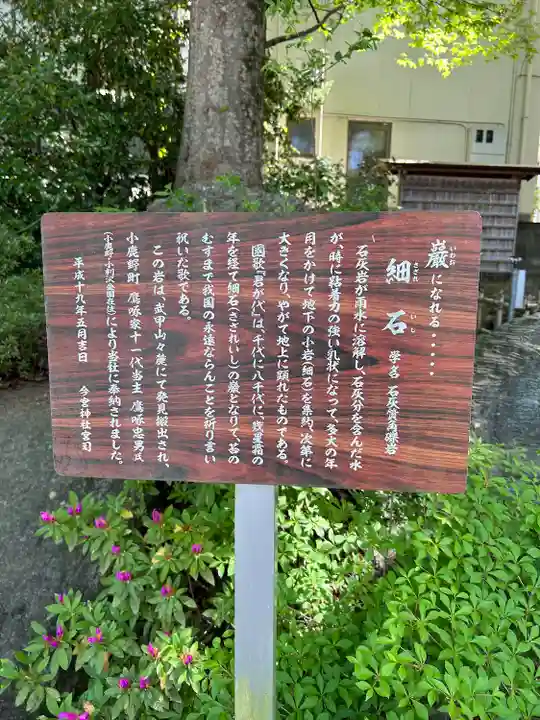 巌になれる・・・・・
いわお
細石 学名 石灰質角礫岩
さざれ いし
石灰岩が雨水に溶解し、石灰分を含んだ水
が、時に粘着力の強い乳状になって、多大の年
月をかけて地下の小岩(細石)を集め、次第に
大きくなり、やがて地上に顕れたものである。
國歌「君が代」は、千代に八千代に、幾星霜の
年を経て細石(さざれいし)の巌となりて、苔の
むすまで我国の永遠ならんことを祈り言い
祝いた歌である。
この岩は、「武甲山々麓にて発見搬出され、
小鹿野町 鷹啄家十一代当主 鷹啄忠男氏
により当社に奉納されました。
平成十九年五月吉日 今宮神社宮司